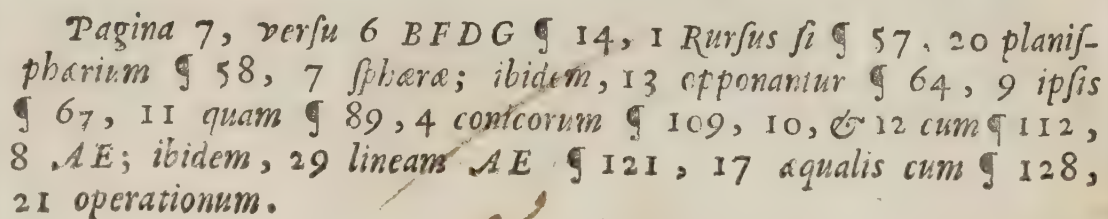 Pagina 7, verſu 6 BFDG ¶ 14, 1 Rurſus ſi ¶ 57. 20 planiſ-
phærium ¶ 58, 7 ſphæræ; ibidem, 13 opponantur ¶ 64, 9 ipſis
¶ 67, 11 quam ¶ 89, 4 contcorum ¶ 109, 10, & 12 cum ¶ 112,
8 AE; ibidem, 29 lineam AE ¶ 121, 17 æqualis cum ¶ 128,
21 operationum.